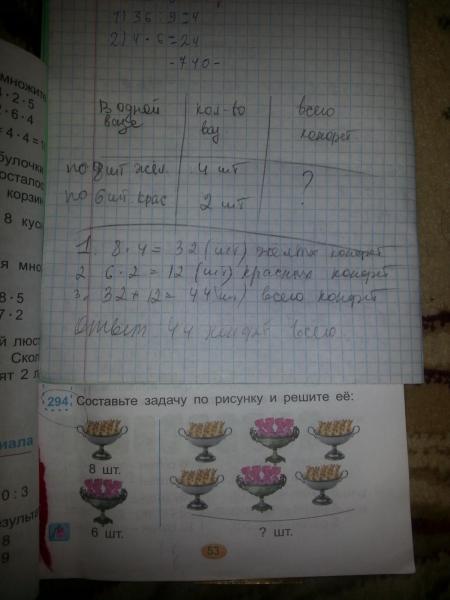 множите
4 · 2 · 5
2 · 6 · 4
4 · 4 = 1
булочки
осталос
корзин
8 кус
я мно
8 · 5
7 · 2
й люст
Скол
ят 2 л
иала
0 : 3
езульта
8
9
1) 36 : 9 = 4
2) 4 · 6 = 24
- 740 -
В одной вазе
кол-во ваз
всего конфет
по 8 шт жел.
4 шт
?
по 6 шт. крас
2 шт
1. 8 · 4 = 32 (шт) желтых конфет
2 6 · 2 = 12 (шт) красных конфет
3. 32 + 12 = 44 (шт) всего конфет
Ответ 44 конфет всего.
294 Составьте задачу по рисунку и решите её:
8 шт.
6 шт.
? шт.
53